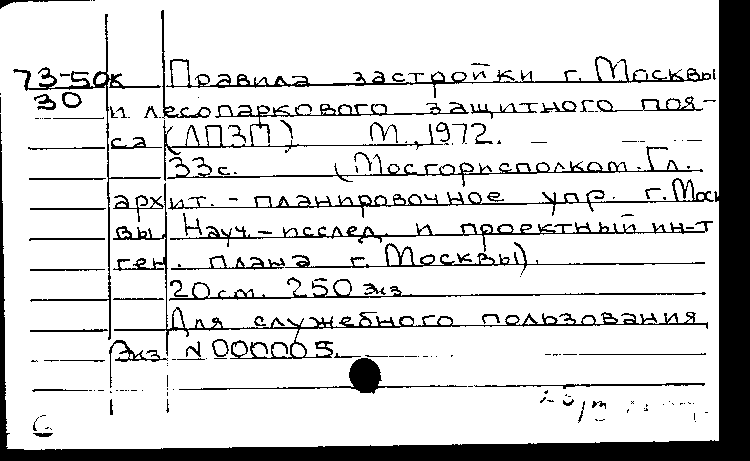 73-50к Правила застройки г. Москвы
30 и лесопаркового защитного поя-
са (ЛПЗП) М., 1972.
33с. (Мосгорисполком. Гл.
архит. - планировочное упр. г. Моск
вы. Науч. - исслед. и проектный ин-т
ген. плана г. Москвы).
20 см. 250 экз
Для служебного пользования,
Экз N 000005.